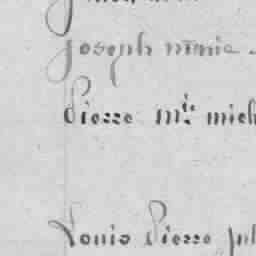 Joseph marie
Pierre Mie mich
Louis Pierre jul